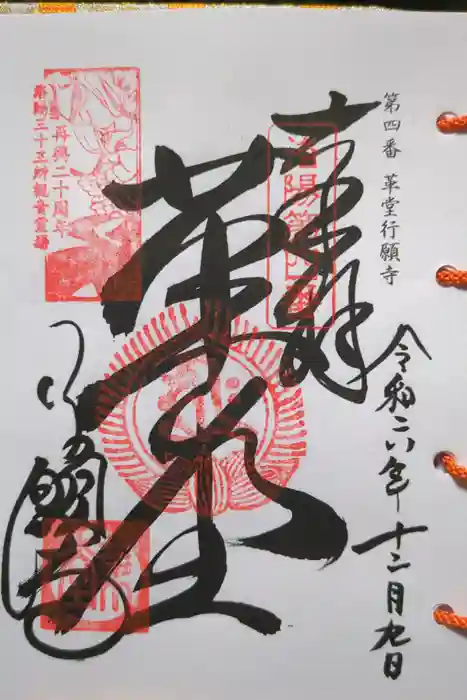 第四番 革堂行願寺
奉拝
洛陽第四番
令和六年十二月九日
革堂
再興二十周年
洛陽三十三所観音霊場
行願寺